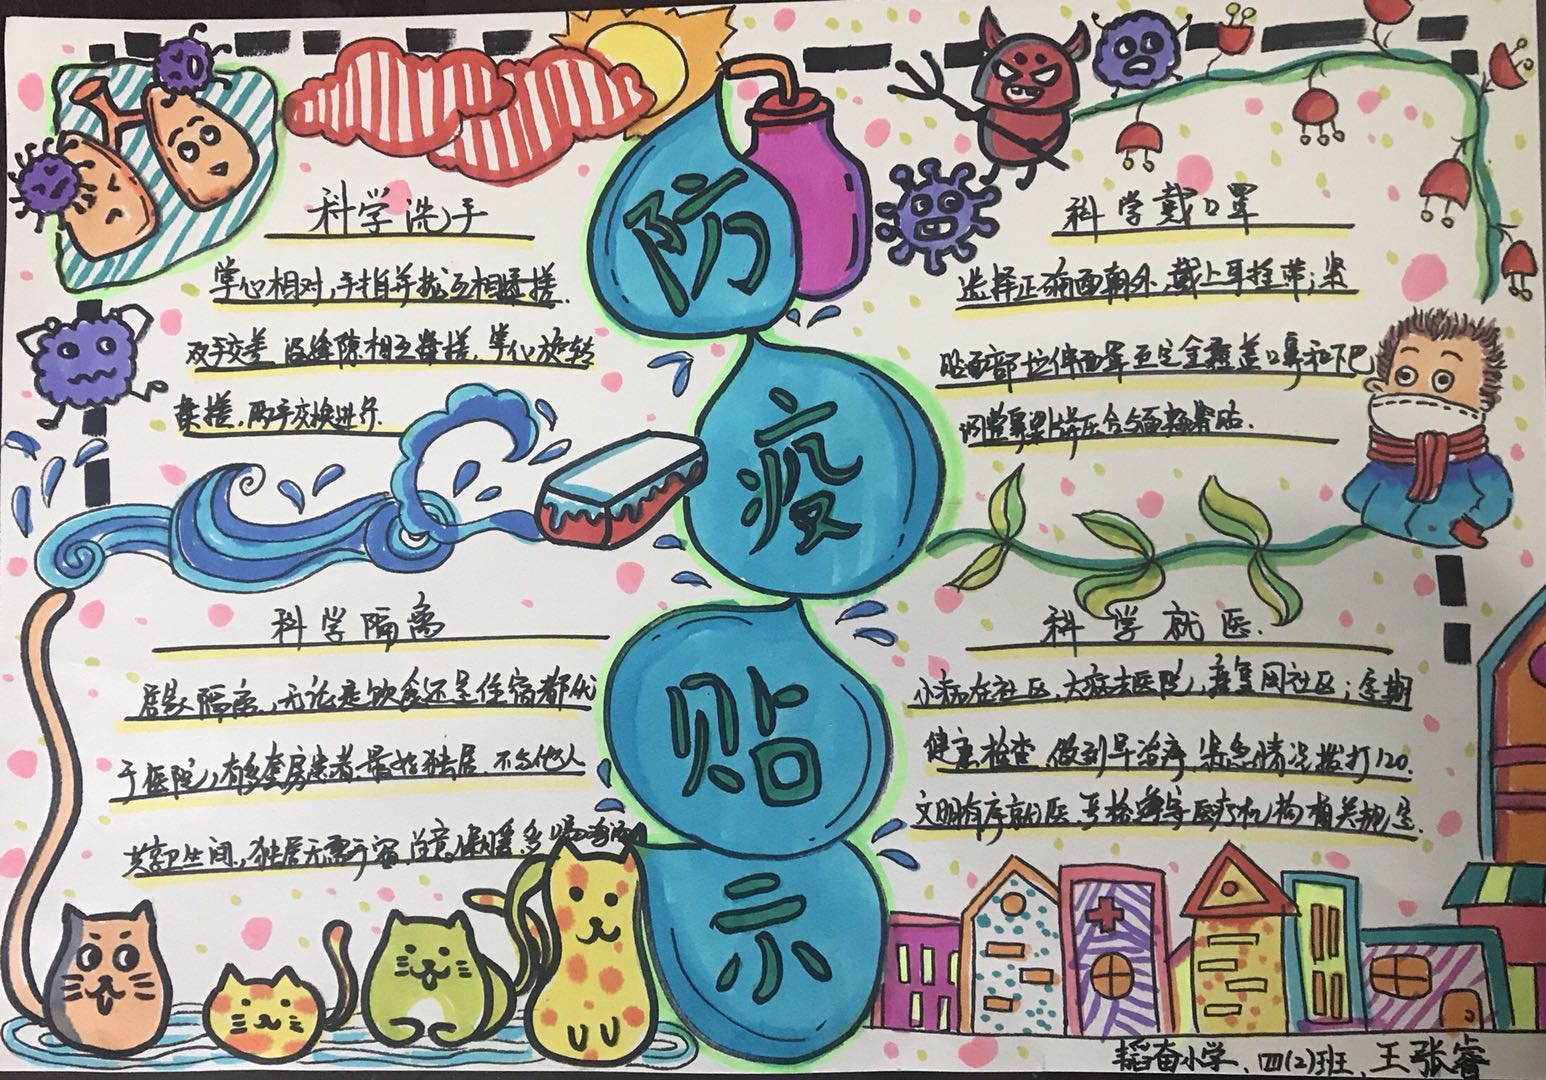 防
疫
贴
示
科学洗手
掌心相对,手指并拢互相搓搓.
双手交叉 沿缝隙相互搓搓,掌心旋转
揉搓,两手交换进行.
科学戴口罩
选择正确面朝外,戴上耳挂带;紧
贴面部拉伸面罩至完全覆盖口鼻和下巴
科学隔离
居家隔离,无论是饮食还是住宿都优
于医院,有多套房患者最好独居,不与他人
共享卫生间,独居无需
科学就医.
小病在社区,大病去医院,康复回社区;定期
健康检查,做到早治疗,紧急情况拨打120.
文明有序就医,严格遵守医疗机构相关规定.
韬奋小学、四(2)班、王张睿